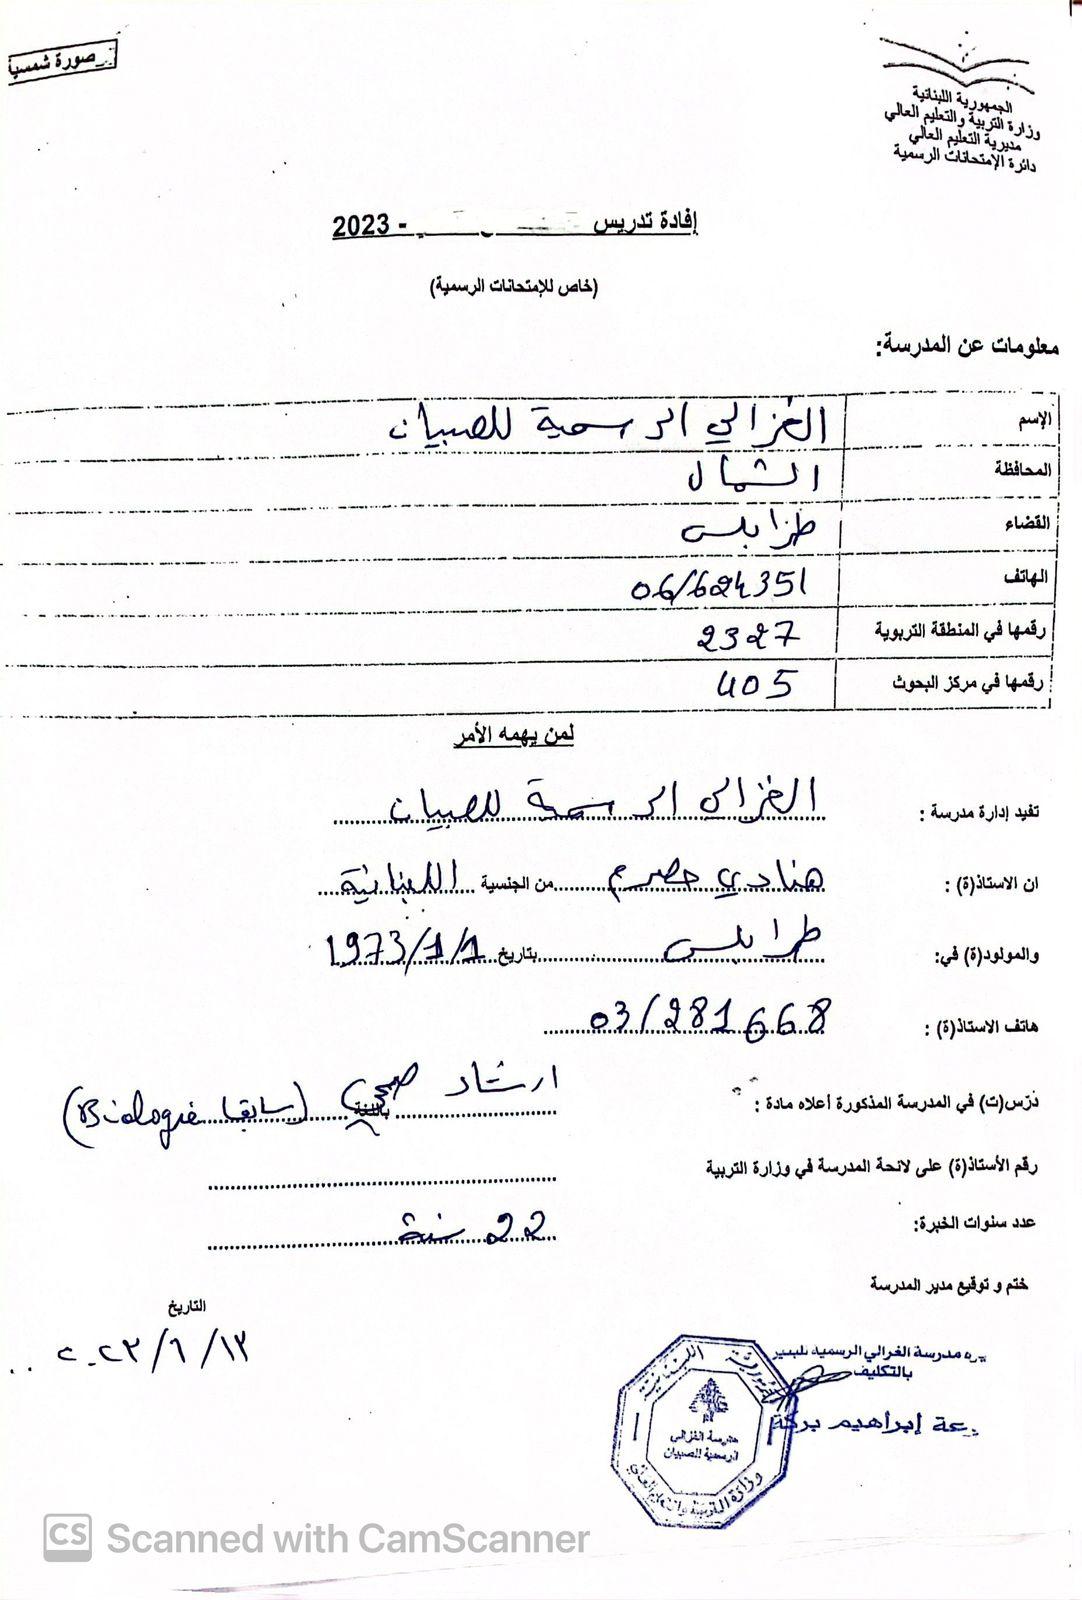 صورة شمسية
الجمهورية اللبنانية
وزارة التربية والتعليم العالي
مديرية التعليم العالي
دائرة الإمتحانات الرسمية
إفادة تدريس - 2023
(خاص للإمتحانات الرسمية)
معلومات عن المدرسة:
الإسم الغزالي الرسمية للصبيان
المحافظة الشمال
القضاء طرابلس
الهاتف 06/624351
رقمها في المنطقة التربوية 2327
رقمها في مركز البحوث 405
لمن يهمه الأمر
تفيد إدارة مدرسة : الغزالي الرسمية للصبيان
ان الاستاذ(ة) : هنادي حصرم من الجنسية اللبنانية
والمولود(ة) في: طرابلس بتاريخ 1973/1/1
هاتف الاستاذ(ة) : 03/281668
دَرّس(ت) في المدرسة المذكورة أعلاه مادة : ارشاد صحي باللغة (سابقا Biologie)
رقم الأستاذ(ة) على لائحة المدرسة في وزارة التربية
عدد سنوات الخبرة: 22 سنة
ختم و توقيع مدير المدرسة
التاريخ
٢٠٢٣/٦/١٣
مدرسة الغزالي الرسمية
بالتكليف
إبراهيم بركة
الجمهورية اللبنانية
مدرسة الغزالي
الرسمية للصبيان
وزارة التربية والتعليم العالي
CS Scanned with CamScanner